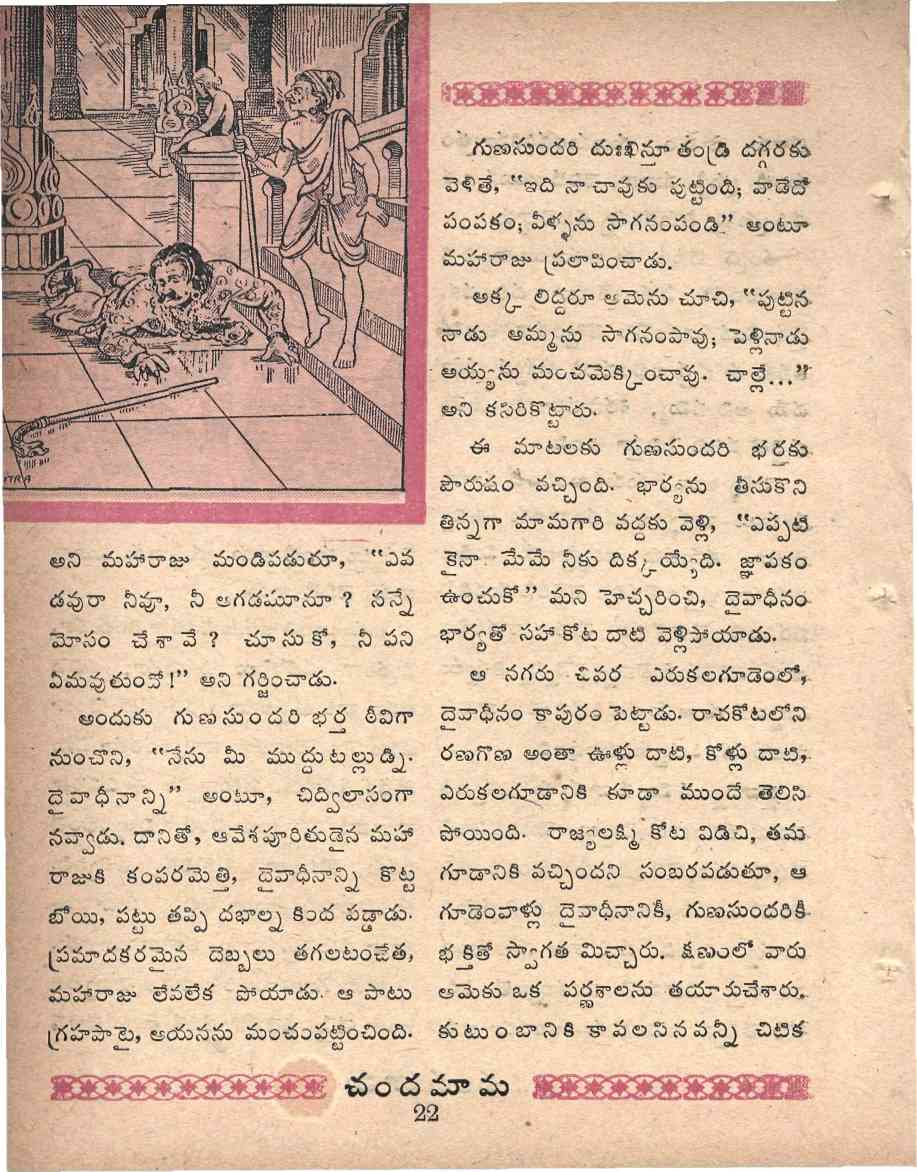 అని మహారాజు మండిపడుతూ, “ఎవ
డవురా నీవూ, నీ అగడమూనూ? నన్నే
మోసం చేశావే? చూసుకో, నీ పని
ఏమవుతుందో!” అని గర్జించాడు.
అందుకు గుణసుందరి భర్త ఠీవిగా
నుంచొని, “నేను మీ ముద్దుటల్లుడ్ని.
దైవాధీనాన్ని” అంటూ, చిద్విలాసంగా
నవ్వాడు. దానితో, ఆవేశపూరితుడైన మహా
రాజుకి కంపరమెత్తి, దైవాధీనాన్ని కొట్ట
బోయి, పట్టు తప్పి దభాల్న కింద పడ్డాడు.
ప్రమాదకరమైన దెబ్బలు తగలటంచేత,
మహారాజు లేవలేక పోయాడు. ఆ పాటు
గ్రహపాటై, ఆయనను మంచంపట్టించింది.
గుణసుందరి దుఃఖిస్తూ తండ్రి దగ్గరకు
వెళితే, “ఇది నా చావుకు పుట్టింది; వాడేదో
పంపకం; వీళ్ళను సాగనంపండి” అంటూ
మహారాజు ప్రలాపించాడు.
అక్క లిద్దరూ ఆమెను చూచి, “పుట్టిన
నాడు అమ్మను సాగనంపావు; పెళ్లినాడు
అయ్యను మంచమెక్కించావు. చాల్లే...”
అని కసిరికొట్టారు.
ఈ మాటలకు గుణసుందరి భర్తకు
పౌరుషం వచ్చింది. భార్యను తీసుకొని
తిన్నగా మామగారి వద్దకు వెళ్లి, “ఎప్పటి
కైనా మేమే నీకు దిక్కయ్యేది. జ్ఞాపకం
ఉంచుకో” మని హెచ్చరించి, దైవాధీనం
భార్యతో సహా కోట దాటి వెళ్లిపోయాడు.
ఆ నగరు చివర ఎరుకలగూడెంలో,
దైవాధీనం కాపురం పెట్టాడు. రాచకోటలోని
రణగొణ అంతా ఊళ్లు దాటి, కోళ్లు దాటి,
ఎరుకలగూడానికి కూడా ముందే తెలిసి
పోయింది. రాజ్యలక్ష్మి కోట విడిచి, తమ
గూడానికి వచ్చిందని సంబరపడుతూ, ఆ
గూడెంవాళ్లు దైవాధీనానికీ, గుణసుందరికీ
భక్తితో స్వాగత మిచ్చారు. క్షణంలో వారు
ఆమెకు ఒక పర్ణశాలను తయారుచేశారు.
కుటుంబానికి కావలసినవన్నీ చిటిక
చందమామ
22